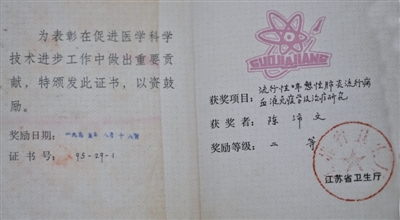 为表彰在促进医学科学
技术进步工作中做出重要贡
献，特颁发此证书，以资鼓
励。
奖励日期：一九九五年八月十八日
证书号：95-29-1
获奖项目：流行性
血液免疫学及治疗研究
获奖者：陈沛文
奖励等级：二等
江苏省卫生厅